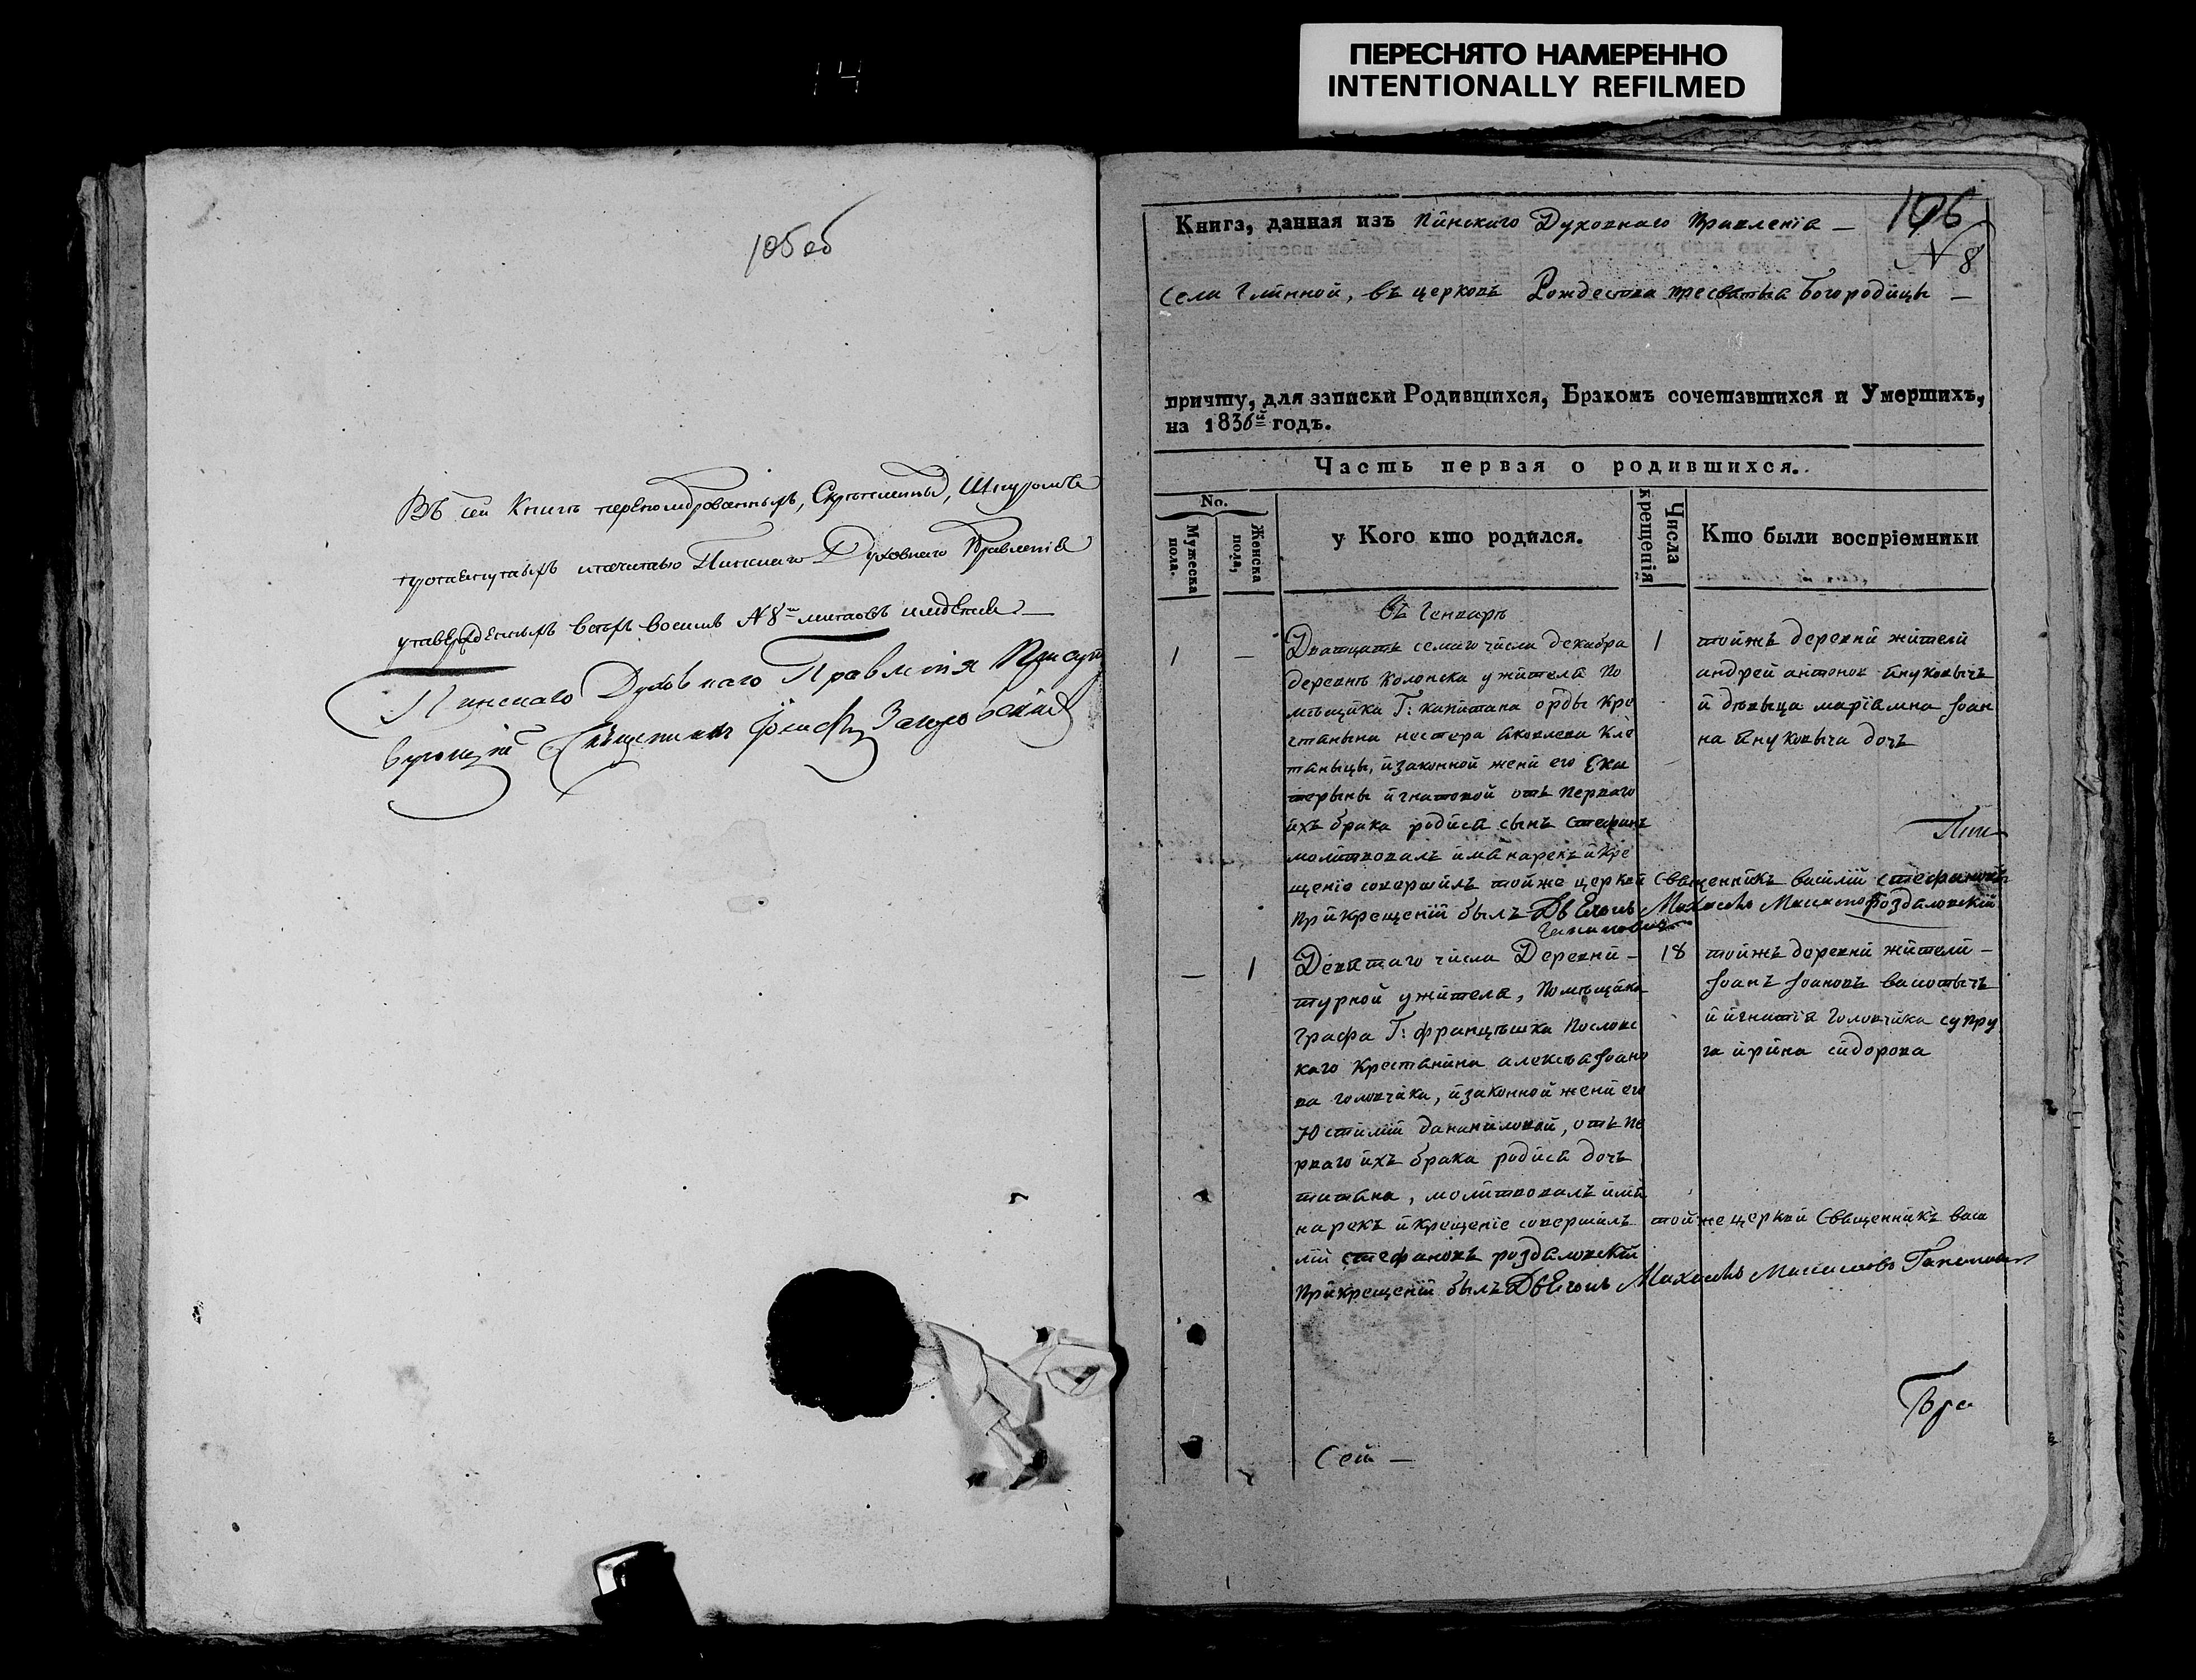 14
ПЕРЕСНЯТО НАМЕРЕННО
INTENTIONALLY REFILMED
105 об
Въ сей Книгѣ перенумерованныхъ, Скрѣпленныхъ, Шнуромъ
протянутыхъ и печатью Пинскаго Духовнаго Правленія
утвержденныхъ всѣхъ восемь N 8 листовъ имѣется
Пинскаго Духовнаго Правленія Присутс
вующій Священникъ
106
Книга, данная изъ Пинскаго Духовнаго Правленія —
N 8
села Глинной, въ церковь Рождества пресвятыя Богородицы —
причту, для записки Родившихся, Бракомъ сочетавшихся и Умершихъ,
на 1836й годъ.
Часть первая о родившихся.
No.
Мужеска пола.
Женска пола,
у Кого кто родился.
Числа крещенія
Кто были воспріемники
въ Генварѣ
1 —
Дватцать семаго числа декабра
деревнѣ Колонска у жителя по
мѣщика Г: капитана орды кре
стянина нестера яковлева кле
таницы, и законной жени его Ека
терыны игнатовой отъ перваго
ихъ брака родися сынъ стефанъ
молитвовалъ имя нарекъ и кре
щеніе совершилъ тойже церкви священникъ василій стефановъ
при крещеніи былъ Роздяловскій
1
тойжъ деревни жители
андрей антонов януковычъ
и дѣвыца маріамна Іоан
на януковыча дочь
— 1
Девятаго числа Деревни —
турной у жителя, помѣщика
графа Г: францѣшка пословс
каго крестянина алексѣя Іоано
ва головчика, и законной жени его
Юстиліи даниловой, отъ пе
рваго ихъ брака родися дочь
татяна, молитвовалъ имя
нарекъ и крещеніе совершилъ тойже церкви священникъ васи
лій стефановъ роздяловскій
при крещеніи былъ
18
тойжъ деревни жители —
Іоанъ Іоановъ
и игнатія головчика супру
га ирина сидорова
Сей —